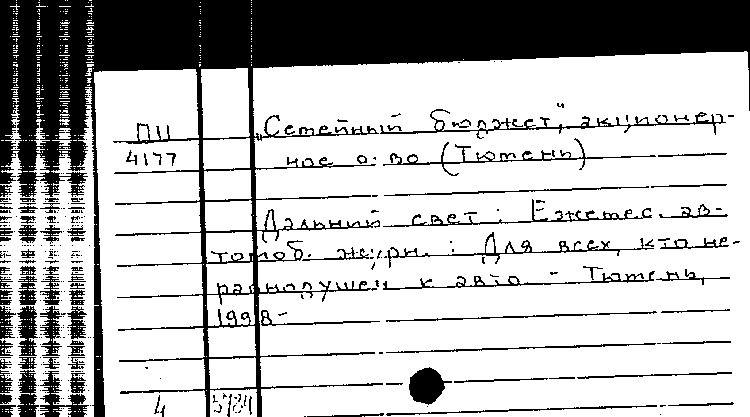 ПЦ „Семейный бюджет“, акционер-
4177 ное о-во (Тюмень)
Дальний свет : Ежемес. ав-
томоб. журн. : Для всех, кто не-
равнодушен к авто - Тюмень,
1998-
4 5784